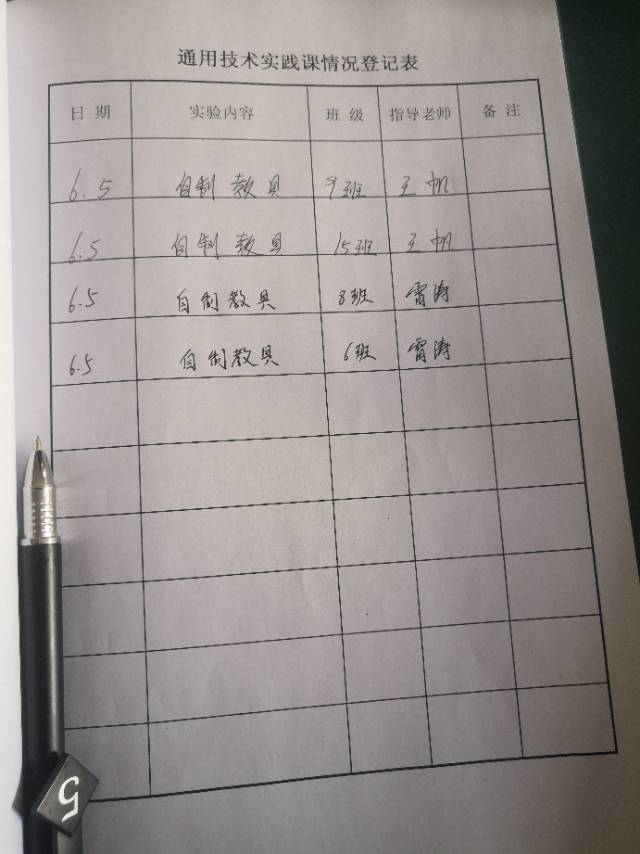 通用技术实践课情况登记表
日期 实验内容 班级 指导老师 备注
6.5 自制教具 9班 王帆
6.5 自制教具 15班 王帆
6.5 自制教具 8班 雷涛
6.5 自制教具 6班 雷涛
5